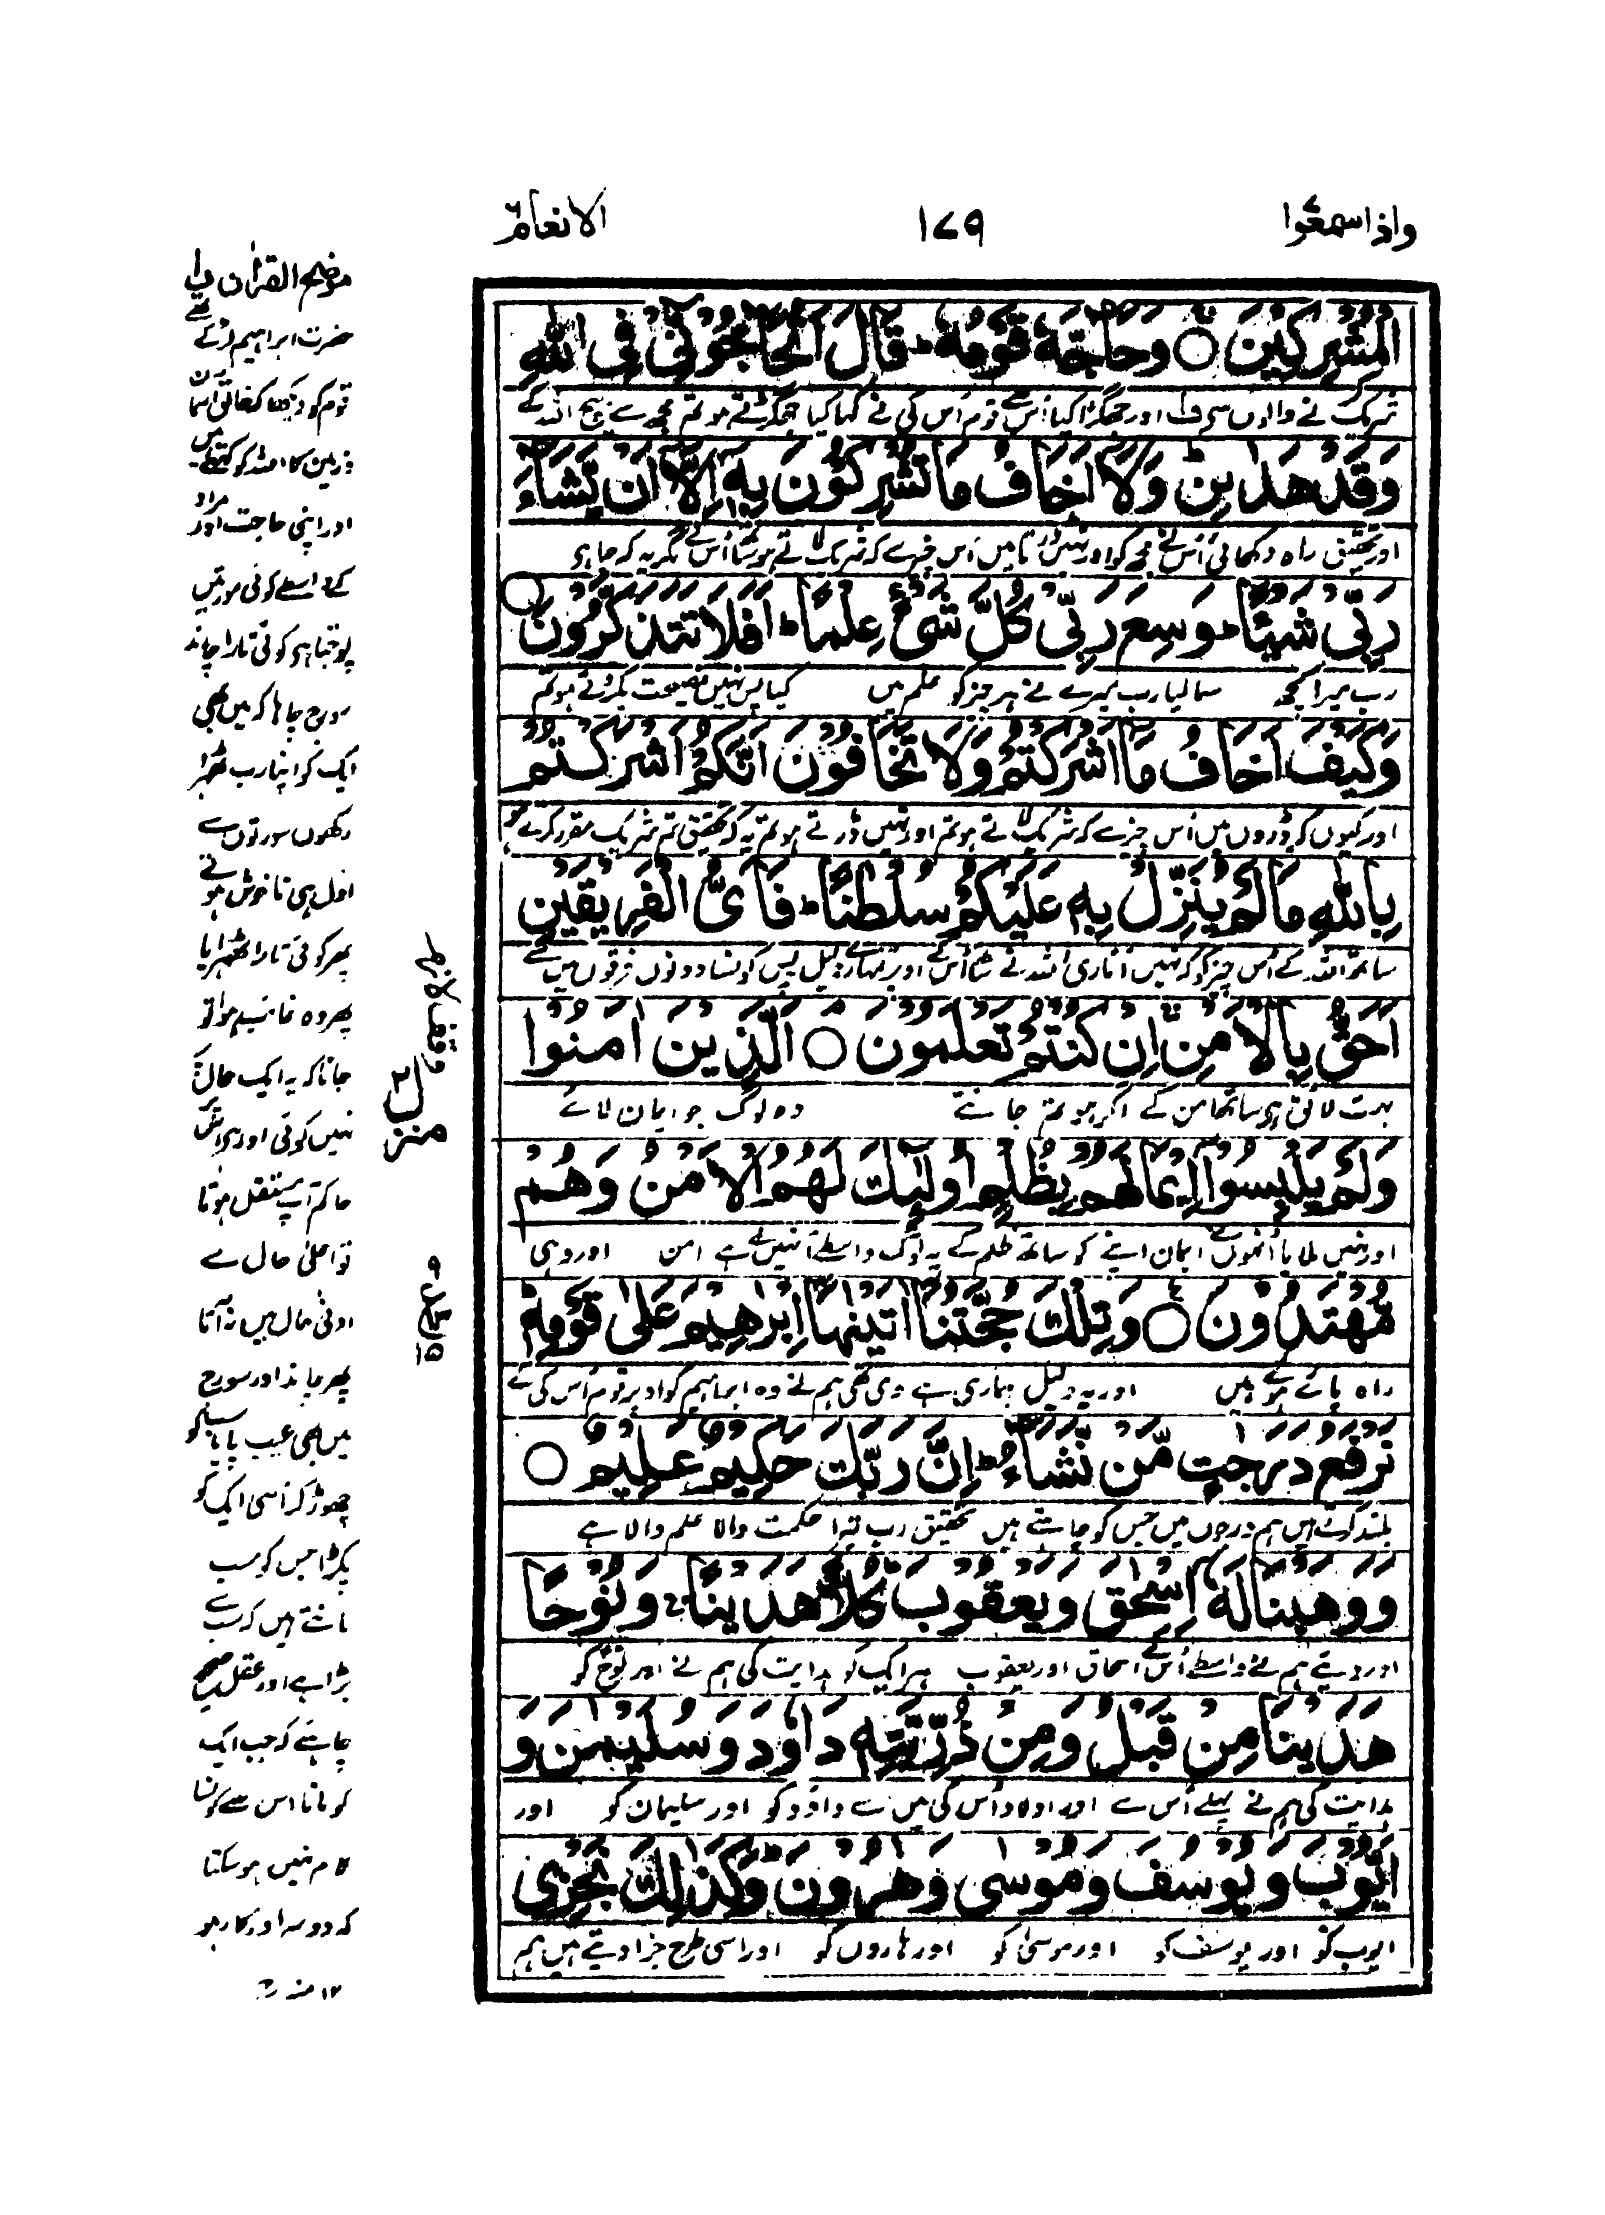 واذاسمعوا
١٧٩
الانعام ٦
الْمُشْرِكِيْنَ ○ وَحَآجَّهٗ قَوْمُهٗ ؕ قَالَ اَتُحَآجُّوْٓنِّیْ فِی اللّٰهِ
شریک کرنے والوں سے ف اور جھگڑا کیا اُس سے قوم اُس کی نے کہا کیا جھگڑتے ہو تم مجھ سے بیچ اللہ کے
وَقَدْ هَدٰىنِ ؕ وَلَاۤ اَخَافُ مَا تُشْرِكُوْنَ بِهٖۤ اِلَّاۤ اَنْ يَّشَآءَ
اور تحقیق راہ دکھائی اُس نے مجھ کو اور نہیں ڈرتا میں اُس چیز سے کہ شریک لاتے ہو ساتھ اُس کے مگر یہ کہ چاہے
رَبِّیْ شَيْئًا ؕ وَسِعَ رَبِّیْ كُلَّ شَیْءٍ عِلْمًا ؕ اَفَلَا تَتَذَكَّرُوْنَ ○
رب میرا کچھ سمالیا رب میرے نے ہر چیز کو علم میں کیا پس نہیں نصیحت پکڑتے ہو تم
وَكَيْفَ اَخَافُ مَاۤ اَشْرَكْتُمْ وَلَا تَخَافُوْنَ اَنَّكُمْ اَشْرَكْتُمْ
اور کیوں کر ڈروں میں اُس چیز سے کہ شریک لاتے ہو تم اور نہیں ڈرتے ہو تم یہ کہ تحقیق تم شریک مقرر کرتے ہو
بِاللّٰهِ مَا لَمْ يُنَزِّلْ بِهٖ عَلَيْكُمْ سُلْطٰنًا ؕ فَاَیُّ الْفَرِيْقَيْنِ
ساتھ اللہ کے اُس چیز کو کہ نہیں اتاری اللہ نے ساتھ اُس کے اوپر تمہارے دلیل پس کونسا دونوں فرقوں میں سے
اَحَقُّ بِالْاَمْنِ ۚ اِنْ كُنْتُمْ تَعْلَمُوْنَ ○ اَلَّذِيْنَ اٰمَنُوْا
بہت لائق ہے ساتھ امن کے اگر ہو تم جانتے وہ لوگ جو ایمان لائے
وَلَمْ يَلْبِسُوْۤا اِيْمَانَهُمْ بِظُلْمٍ اُولٰٓئِكَ لَهُمُ الْاَمْنُ وَهُمْ
اور نہیں ملایا اُنھوں نے ایمان اپنے کو ساتھ ظلم کے یہ لوگ واسطے اُنہیں کے ہے امن اور وہی
مُّهْتَدُوْنَ ○ وَتِلْكَ حُجَّتُنَاۤ اٰتَيْنٰهَاۤ اِبْرٰهِيْمَ عَلٰی قَوْمِهٖ ؕ
راہ پائے ہوئے ہیں اور یہ دلیل ہماری ہے دی تھی ہم نے وہ ابراہیم کو اوپر قوم اُس کی کے
نَرْفَعُ دَرَجٰتٍ مَّنْ نَّشَآءُ ؕ اِنَّ رَبَّكَ حَكِيْمٌ عَلِيْمٌ ○
بلند کرتے ہیں ہم درجوں میں جس کو چاہتے ہیں تحقیق رب تیرا حکمت والا علم والا ہے
وَوَهَبْنَا لَهٗۤ اِسْحٰقَ وَيَعْقُوْبَ ؕ كُلًّا هَدَيْنَا ۚ وَنُوْحًا
اور دیئے ہم نے واسطے اُس کے اسحاق اور یعقوب ہر ایک کو ہدایت کی ہم نے اور نوح کو
هَدَيْنَا مِنْ قَبْلُ وَمِنْ ذُرِّيَّتِهٖ دَاوٗدَ وَسُلَيْمٰنَ وَ
ہدایت کی ہم نے پہلے اُس سے اور اولاد اُس کی میں سے داؤد کو اور سلیمان کو اور
اَيُّوْبَ وَيُوْسُفَ وَمُوْسٰی وَهٰرُوْنَ ؕ وَكَذٰلِكَ نَجْزِی
ایوب کو اور یوسف کو اور موسیٰ کو اور ہاروں کو اور اسی طرح جزا دیتے ہیں ہم
وقف لازم
منزل ٢
موضح القرآن ف١
حضرت ابراہیم لڑکے تھے
قوم کو دیکھا کہ خالق آسمان
زمین کا اللہ کو کہتے ہیں
اور اپنی حاجت اور مراد
کے واسطے کوئی مورتیں
پوجتا ہے کوئی تارا چاند
سورج چاہا کہ میں بھی
ایک کو اپنا رب ٹھہرا
رکھوں سورتوں سے
اول ہی ناخوش ہوئے
پھر کوئی تارا ٹھہرایا
پھر وہ غائب ہوا تو
جانا کہ یہ ایک حال پر
نہیں کوئی اور ہے اس پر
حاکم آپ مستقل ہوتا
تو اعلیٰ حال سے
ادنیٰ حال میں نہ آتا
پھر چاند اور سورج
میں بھی عیب پایا سب کو
چھوڑ کر اُسی ایک کو
پکڑا جس کو سب
مانتے ہیں کہ سب سے
بڑا ہے اور عقل صحیح
چاہئے کہ جب ایک
کو مانا اس سے کونسا
کام نہیں ہو سکتا
کہ دوسرا درکار ہو
١٢ منہ رح